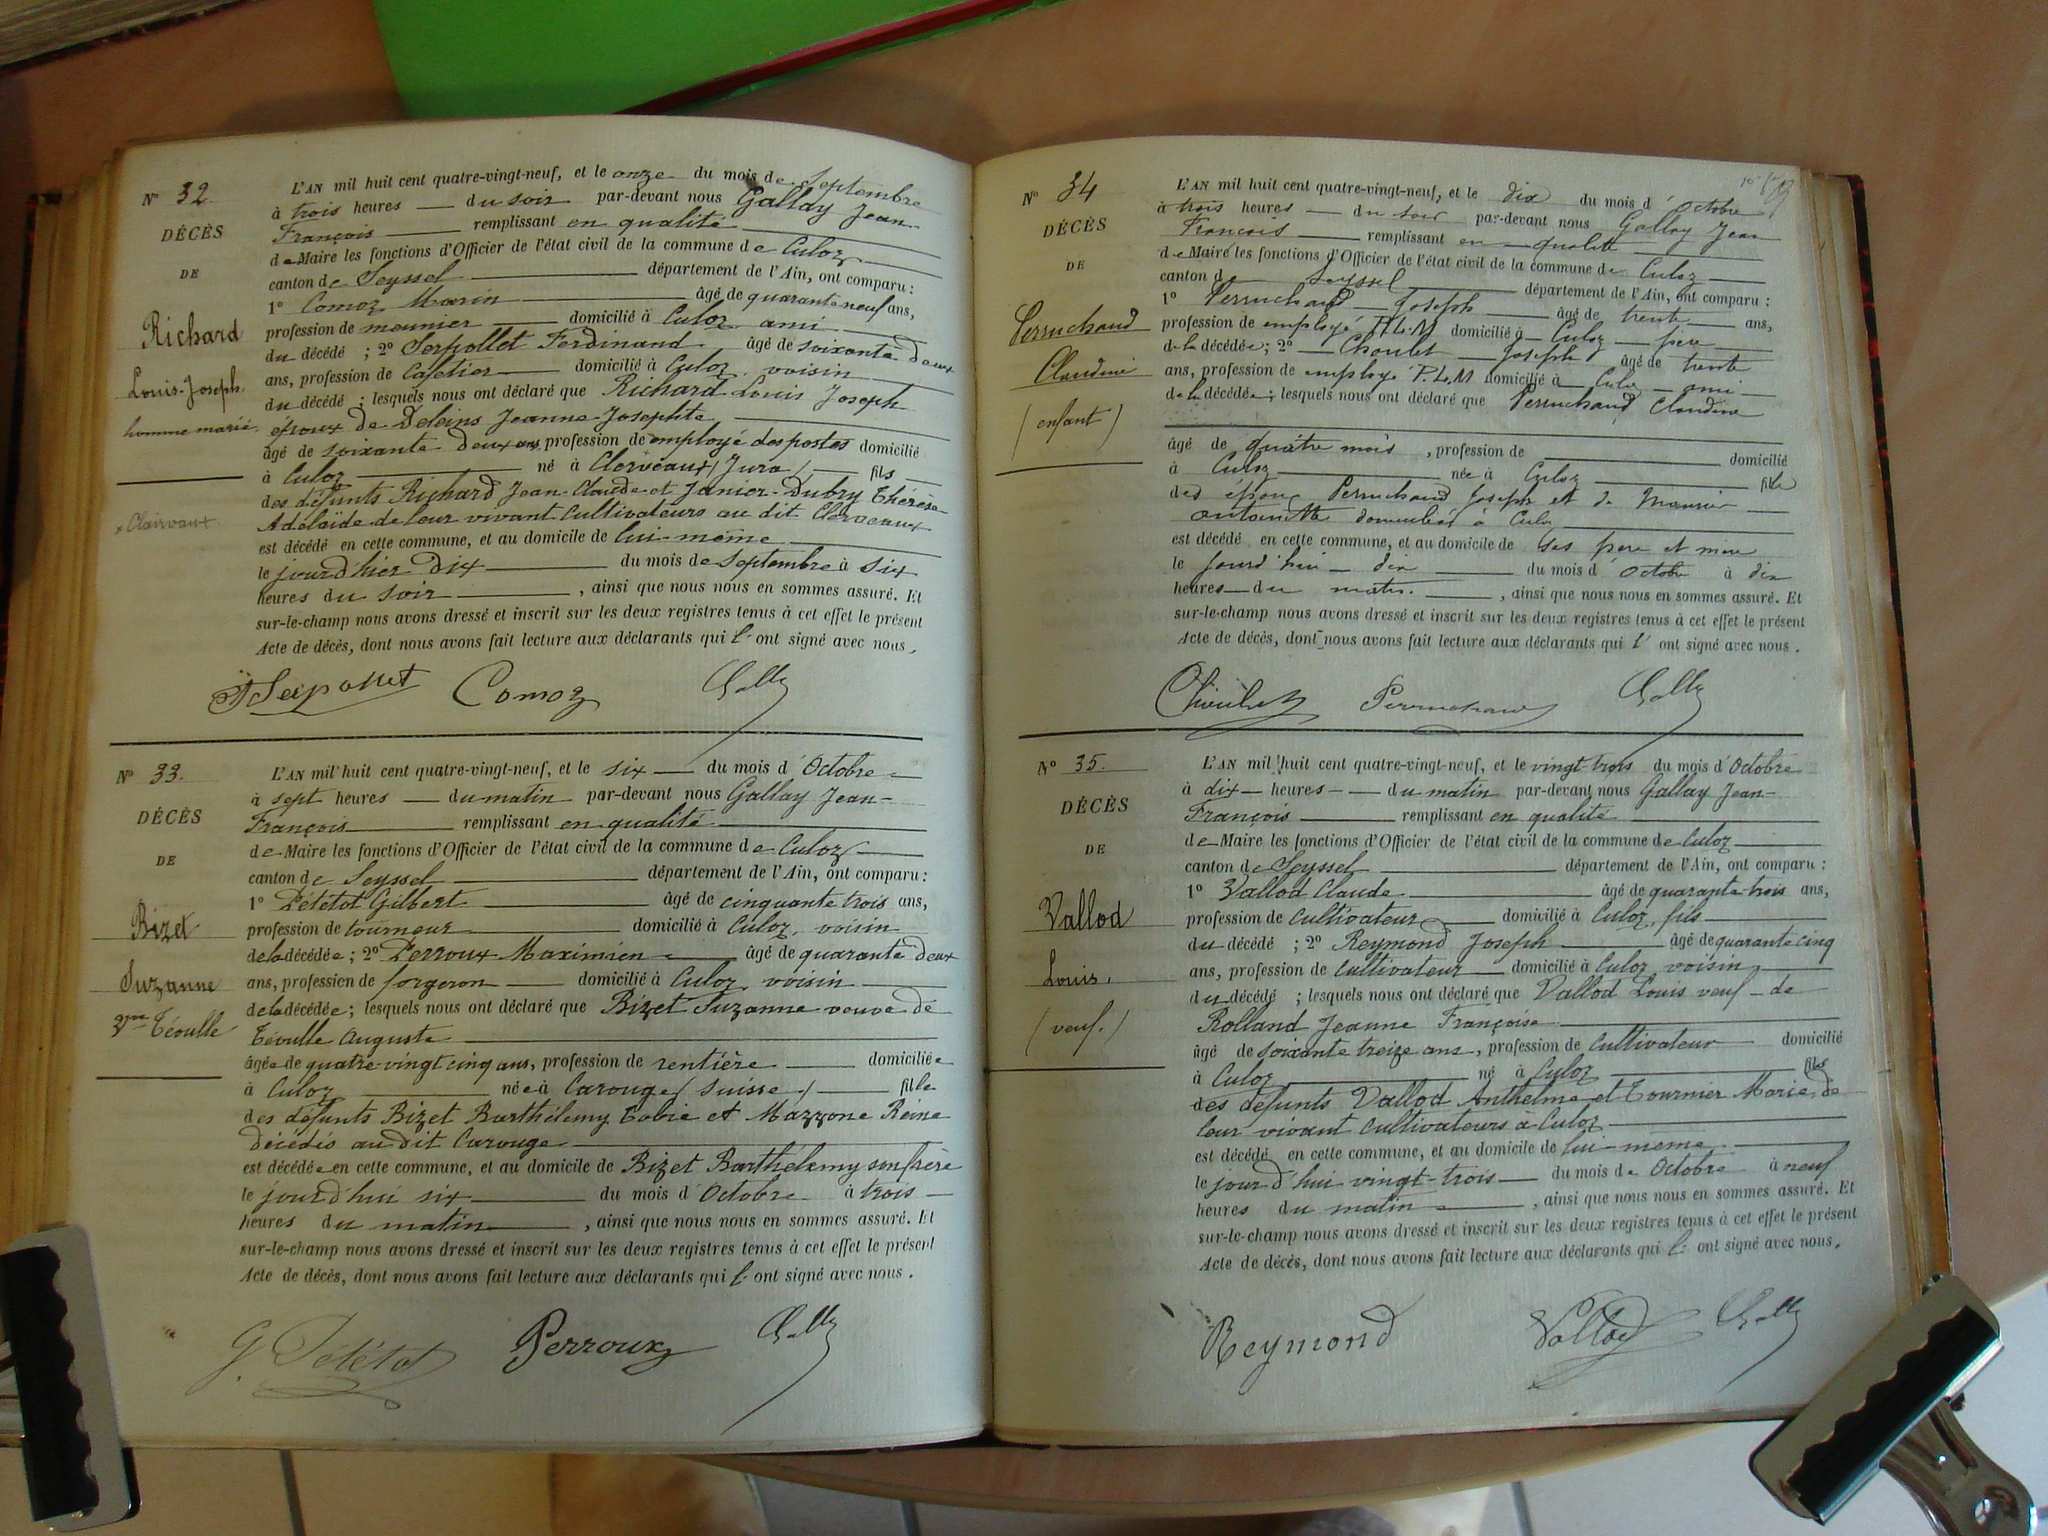 N° 32.
DÉCÈS
DE
Richard
Louis-Joseph
homme marié.
x Clairvaux
L'AN mil huit cent quatre-vingt-neuf, et le onze du mois de Septembre
à trois heures — du soir par-devant nous Gallay Jean
François — remplissant en qualité
de Maire les fonctions d'Officier de l'état civil de la commune de Culoz
canton de Seyssel — département de l'Ain, ont comparu :
1° Comoz Marin — âgé de quarante neuf ans,
profession de meunier — domicilié à Culoz ami
du décédé ; 2° Serpollet Ferdinand âgé de soixante deux
ans, profession de Cafetier — domicilié à Culoz, voisin
du décédé ; lesquels nous ont déclaré que Richard Louis Joseph
époux de Deleins Jeanne-Josephte
âgé de soixante deux ans, profession de employé des postes domicilié
à Culoz — né à Clerveaux (Jura) — fils
des défunts Richard Jean-Claude et Janier-Dubry Thérèse
Adelaïde de leur vivant Cultivateurs au dit Clerveaux
est décédé en cette commune, et au domicile de lui-même
le jour d'hier dix — du mois de Septembre à six
heures du soir — , ainsi que nous nous en sommes assuré. Et
sur-le-champ nous avons dressé et inscrit sur les deux registres tenus à cet effet le présent
Acte de décès, dont nous avons fait lecture aux déclarants qui l' ont signé avec nous.
Serpollet Comoz Gallay
N° 33.
DÉCÈS
DE
Bizet
Suzanne
Vve Téoulle
L'AN mil huit cent quatre-vingt-neuf, et le six — du mois d'Octobre
à sept heures — du matin par-devant nous Gallay Jean-
François — remplissant en qualité
de Maire les fonctions d'Officier de l'état civil de la commune de Culoz
canton de Seyssel — département de l'Ain, ont comparu :
1° Pétetot Gilbert — âgé de cinquante trois ans,
profession de tourneur — domicilié à Culoz, voisin
de la décédée ; 2° Perroux Maximien — âgé de quarante deux
ans, profession de forgeron — domicilié à Culoz, voisin
de la décédée ; lesquels nous ont déclaré que Bizet Suzanne veuve de
Téoulle Auguste
âgée de quatre-vingt cinq ans, profession de rentière — domiciliée
à Culoz — née à Carouge (Suisse) — fille
des défunts Bizet Barthélemy Tobie et Mazzone Reine
décédés au dit Carouge
est décédée en cette commune, et au domicile de Bizet Barthélemy son frère
le jour d'hui six — du mois d'Octobre à trois
heures du matin — , ainsi que nous nous en sommes assuré. Et
sur-le-champ nous avons dressé et inscrit sur les deux registres tenus à cet effet le présent
Acte de décès, dont nous avons fait lecture aux déclarants qui l' ont signé avec nous.
G. Pétetot Perroux Gallay
N° 34
DÉCÈS
DE
Perruchaud
Claudine
(enfant)
L'AN mil huit cent quatre-vingt-neuf, et le dix du mois d'Octobre
à trois heures — du soir par-devant nous Gallay Jean
François — remplissant en qualité
de Maire les fonctions d'Officier de l'état civil de la commune de Culoz
canton de Seyssel — département de l'Ain, ont comparu :
1° Perruchaud Joseph — âgé de trente — ans,
profession de employé P.L.M domicilié à Culoz — père
de la décédée ; 2° — Choulet — Joseph âgé de trente
ans, profession de employé P.L.M domicilié à Culoz — ami
de la décédée ; lesquels nous ont déclaré que Perruchaud Claudine
âgé de quatre mois , profession de — domicilié
à Culoz — née à Culoz — fille
des époux Perruchaud Joseph et de
antoinette domiciliés à Culoz
est décédé en cette commune, et au domicile de ses père et mère
le jour d'hui — dix — du mois d'Octobre à dix
heures du matin. — , ainsi que nous nous en sommes assuré. Et
sur-le-champ nous avons dressé et inscrit sur les deux registres tenus à cet effet le présent
Acte de décès, dont nous avons fait lecture aux déclarants qui l' ont signé avec nous.
Choulet Perruchaud Gallay
N° 35.
DÉCÈS
DE
Vallod
Louis.
(veuf.)
L'AN mil huit cent quatre-vingt-neuf, et le vingt-trois du mois d'Octobre
à dix — heures — du matin par-devant nous Gallay Jean-
François — remplissant en qualité
de Maire les fonctions d'Officier de l'état civil de la commune de Culoz
canton de Seyssel — département de l'Ain, ont comparu :
1° Vallod Claude — âgé de quarante-trois ans,
profession de Cultivateur — domicilié à Culoz, fils
du décédé ; 2° Reymond Joseph — âgé de quarante cinq
ans, profession de Cultivateur — domicilié à Culoz voisin
du décédé ; lesquels nous ont déclaré que Vallod Louis veuf de
Rolland Jeanne Françoise
âgé de soixante treize ans, profession de Cultivateur — domicilié
à Culoz — né à Culoz — fils
des défunts Vallod Anthelme et Tournier Marie de
leur vivant Cultivateurs à Culoz
est décédé en cette commune, et au domicile de lui-même
le jour d'hui vingt-trois — du mois de Octobre à neuf
heures du matin — , ainsi que nous nous en sommes assuré. Et
sur-le-champ nous avons dressé et inscrit sur les deux registres tenus à cet effet le présent
Acte de décès, dont nous avons fait lecture aux déclarants qui l' ont signé avec nous.
Reymond Vallod Gallay